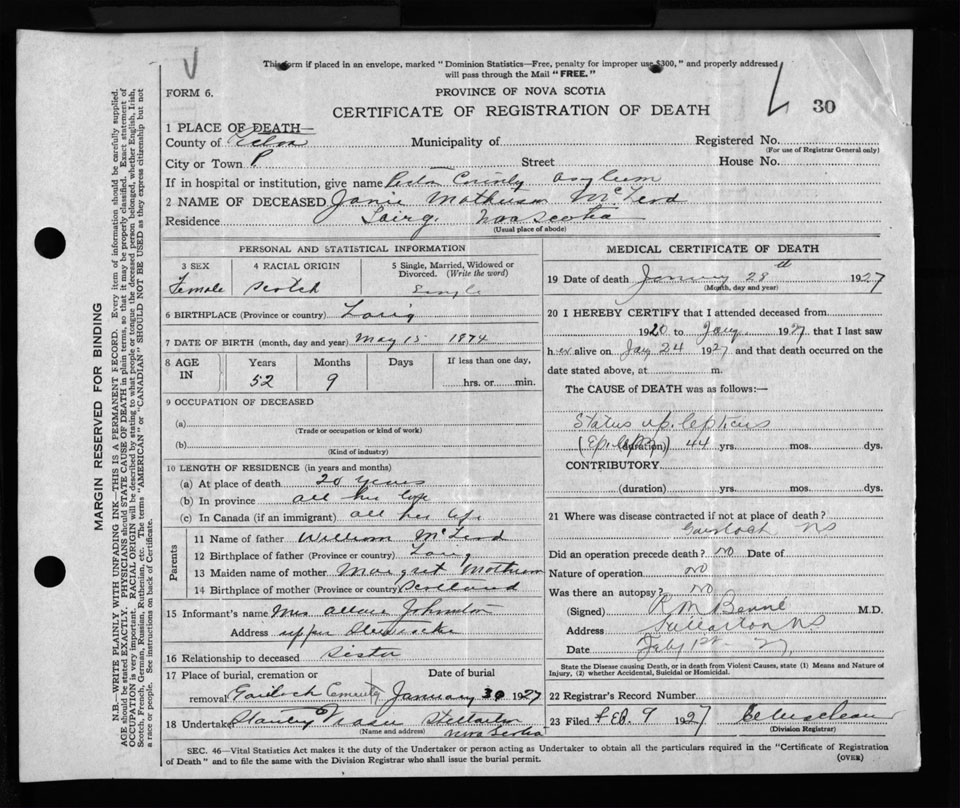 This form if placed in an envelope, marked "Dominion Statistics—Free, penalty for improper use $300," and properly addressed
will pass through the Mail "FREE."
FORM 6.
PROVINCE OF NOVA SCOTIA
CERTIFICATE OF REGISTRATION OF DEATH
30
1 PLACE OF DEATH—
County of Municipality of Registered No.
(For use of Registrar General only)
City or Town P Street House No.
If in hospital or institution, give name County asylum
2 NAME OF DECEASED Janie Matheson McLeod
Residence Lairg. Nova Scotia
(Usual place of abode)
PERSONAL AND STATISTICAL INFORMATION
3 SEX
Female
4 RACIAL ORIGIN
Scotch
5 Single, Married, Widowed or Divorced. (Write the word)
Single
6 BIRTHPLACE (Province or country) Lairg
7 DATE OF BIRTH (month, day and year) May 15 1874
8 AGE IN Years Months Days If less than one day,
52 9 hrs. or min.
9 OCCUPATION OF DECEASED
(a)
(Trade or occupation or kind of work)
(b)
(Kind of industry)
10 LENGTH OF RESIDENCE (in years and months)
(a) At place of death 20 years
(b) In province all her life
(c) In Canada (if an immigrant) all her life
Parents
11 Name of father William McLeod
12 Birthplace of father (Province or country) Lairg
13 Maiden name of mother Margret Matheson
14 Birthplace of mother (Province or country) Scotland
15 Informant's name Mrs Johnston
Address upper Stewiacke
16 Relationship to deceased sister
17 Place of burial, cremation or removal Date of burial
Gairloch Cemetery January 30 1927
18 Undertaker Stanley Fraser Stellarton
Nova Scotia
(Name and address)
MEDICAL CERTIFICATE OF DEATH
19 Date of death January 28th 1927
(Month, day and year)
20 I HEREBY CERTIFY that I attended deceased from
1920 to Jany 1927 that I last saw
her alive on Jay 24 1927 and that death occurred on the
date stated above, at m.
The CAUSE of DEATH was as follows:—
Status epilepticus
(Epilepsy) (duration) 44 yrs. mos. dys.
CONTRIBUTORY
(duration) yrs. mos. dys.
21 Where was disease contracted if not at place of death?
Gairloch NS
Did an operation precede death? NO Date of
Nature of operation no
Was there an autopsy? NO
(Signed) M.D.
Address Stellarton NS
Date Feby 1st 27
State the Disease causing Death, or in death from Violent Causes, state (1) Means and Nature of
Injury, (2) whether Accidental, Suicidal or Homicidal.
22 Registrar's Record Number
23 Filed FEB. 9 1927
(Division Registrar)
SEC. 46—Vital Statistics Act makes it the duty of the Undertaker or person acting as Undertaker to obtain all the particulars required in the "Certificate of Registration
of Death" and to file the same with the Division Registrar who shall issue the burial permit.
(OVER)
MARGIN RESERVED FOR BINDING
N.B.—WRITE PLAINLY WITH UNFADING INK—THIS IS A PERMANENT RECORD. Every item of information should be carefully supplied.
AGE should be stated EXACTLY. PHYSICIANS should STATE CAUSE OF DEATH in plain terms, so that it may be properly classified. Exact statement of
OCCUPATION is very important. RACIAL ORIGIN will be described by stating to what people or tongue the deceased person belonged, whether English, Irish,
Scotch, French, German, Russian, Ruthenian, etc. The terms "AMERICAN" or "CANADIAN" SHOULD NOT BE USED as they express citizenship but not
a race or people. See instructions on back of Certificate.